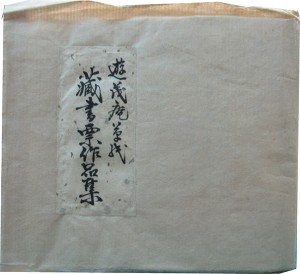 遊茂庵
藏書票作品集